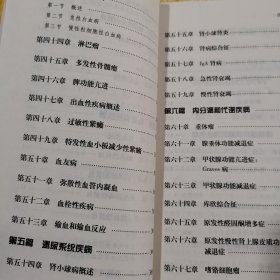 第一节 概述
第二节 急性白血病
第三节 慢性粒细胞性白血病
第四十四章 淋巴瘤
第四十五章 多发性骨髓瘤
第四十六章 脾功能亢进
第四十七章 出血性疾病概述
第四十八章 过敏性紫癜
第四十九章 特发性血小板减少性紫癜
第五十章 血友病
第五十一章 弥散性血管内凝血
第五十二章 血栓性疾病
第五十三章 输血和输血反应
第五篇 泌尿系统疾病
第五十四章 肾小球病概述
第五十五章 肾小球肾炎
第五十六章 肾病综合征
第五十七章 IgA肾病
第五十八章 急性肾衰竭
第五十九章 慢性肾衰竭
第六篇 内分泌和代谢疾病
第六十章 垂体瘤
第六十一章 腺垂体功能减退症
第六十二章 甲状腺功能亢进症:
Graves病
第六十三章 甲状腺功能减退症
第六十四章 库欣综合征
第六十五章 原发性醛固酮增多症
第六十六章 原发性慢性肾上腺皮质功
减退症
第六十七章 嗜铬细胞瘤